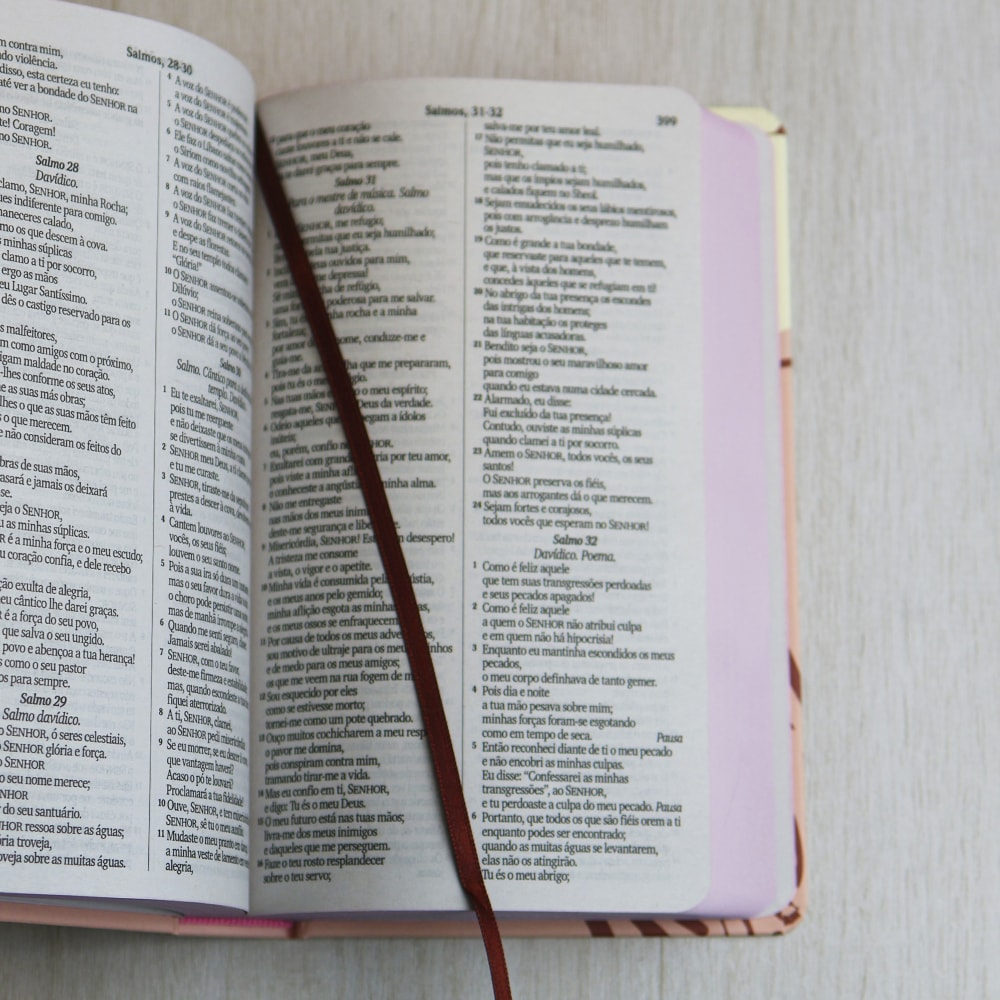 Salmos, 28-30
m contra mim,
do violência.
disso, esta certeza eu tenho:
até ver a bondade do SENHOR na
no SENHOR.
te! Coragem!
no SENHOR.
Salmo 28
Davídico.
clamo, SENHOR, minha Rocha;
ues indiferente para comigo.
maneceres calado,
mo os que descem à cova.
s minhas súplicas
clamo a ti por socorro,
ergo as mãos
eu Lugar Santíssimo.
dês o castigo reservado para os
s malfeitores,
m como amigos com o próximo,
igam maldade no coração.
-lhes conforme os seus atos,
e as suas más obras;
lhes o que as suas mãos têm feito
s o que merecem.
e não consideram os feitos do
bras de suas mãos,
asará e jamais os deixará
se.
eja o SENHOR,
u as minhas súplicas.
R é a minha força e o meu escudo;
u coração confia, e dele recebo
ção exulta de alegria,
eu cântico lhe darei graças.
é a força do seu povo,
que salva o seu ungido.
povo e abençoa a tua herança!
s como o seu pastor
os para sempre.
Salmo 29
Salmo davídico.
o SENHOR, ó seres celestiais,
o SENHOR glória e força.
o SENHOR
o seu nome merece;
NHOR
do seu santuário.
HOR ressoa sobre as águas;
ória troveja,
oveja sobre as muitas águas.
4 A voz do SENHOR é
a voz do SENHOR é
5 A voz do SENHOR
o SENHOR despedaça
6 Ele faz o Líbano saltar
o Siriom como
7 A voz do SENHOR
com raios flamejantes.
8 A voz do SENHOR faz
o SENHOR faz tremer
9 A voz do SENHOR
e despe as florestas.
E no seu templo todos
"Glória!"
10 O SENHOR assentou-se
Dilúvio;
o SENHOR reina
11 O SENHOR dá força ao
o SENHOR dá a seu povo
Salmo 30
Salmo. Cântico para
templo. Davídico.
1 Eu te exaltarei, SENHOR,
pois tu me reergueste
e não deixaste que os
se divertissem à minha
2 SENHOR meu Deus, a ti
e tu me curaste.
3 SENHOR, tiraste-me da
prestes a descer à cova,
à vida.
4 Cantem louvores ao SENHOR,
vocês, os seus fiéis;
louvem o seu santo nome.
5 Pois a sua ira só dura um
mas o seu favor dura a vida
o choro pode persistir uma
mas de manhã irrompe a
6 Quando me senti seguro,
Jamais serei abalado!
7 SENHOR, com o teu favor,
deste-me firmeza e
mas, quando escondeste
fiquei aterrorizado.
8 A ti, SENHOR, clamei,
ao SENHOR pedi misericórdia
9 Se eu morrer, se eu descer
que vantagem haverá?
Acaso o pó te louvará?
Proclamará a tua fidelidade?
10 Ouve, SENHOR, e tem
SENHOR, sê tu o meu auxílio.
11 Mudaste o meu pranto em
a minha veste de lamento em
alegria,
Salmos, 31-32 399
para que o meu coração
louvores a ti e não se cale.
SENHOR, meu Deus,
darei graças para sempre.
Salmo 31
Para o mestre de música. Salmo
davídico.
SENHOR, me refugio;
permitas que eu seja humilhado;
tua justiça.
teus ouvidos para mim,
vem depressa!
minha de refúgio,
poderosa para me salvar.
3 Sim, tu minha rocha e a minha
fortaleza;
por amor nome, conduze-me e
guia-me.
4 Tira-me da que me prepararam,
pois tu és o meu
5 Nas tuas mãos o meu espírito;
resgata-me, Deus da verdade.
6 Odeio aqueles apegam a ídolos
inúteis;
eu, porém, confio no
7 Exultarei com grande por teu amor,
pois viste a minha
e conheceste a angústia minha alma.
8 Não me entregaste
nas mãos dos meus
deste-me segurança e
9 Misericórdia, SENHOR! desespero!
A tristeza me consome
a vista, o vigor e o apetite.
10 Minha vida é consumida pela
e os meus anos pelo gemido;
minha aflição esgota as minhas
e os meus ossos se enfraquecem.
11 Por causa de todos os meus
sou motivo de ultraje para os meus
e de medo para os meus amigos;
os que me veem na rua fogem de
12 Sou esquecido por eles
como se estivesse morto;
tornei-me como um pote quebrado.
13 Ouço muitos cochicharem a meu
o pavor me domina,
pois conspiram contra mim,
tramando tirar-me a vida.
14 Mas eu confio em ti, SENHOR,
e digo: Tu és o meu Deus.
15 O meu futuro está nas tuas mãos;
livra-me dos meus inimigos
e daqueles que me perseguem.
16 Faze o teu rosto resplandecer
sobre o teu servo;
salva-me por teu amor leal.
17 Não permitas que eu seja humilhado,
SENHOR,
pois tenho clamado a ti;
mas que os ímpios sejam humilhados,
e calados fiquem no Sheol.
18 Sejam emudecidos os seus lábios mentirosos,
pois com arrogância e desprezo humilham
os justos.
19 Como é grande a tua bondade,
que reservaste para aqueles que te temem,
e que, à vista dos homens,
concedes àqueles que se refugiam em ti!
20 No abrigo da tua presença os escondes
das intrigas dos homens;
na tua habitação os proteges
das línguas acusadoras.
21 Bendito seja o SENHOR,
pois mostrou o seu maravilhoso amor
para comigo
quando eu estava numa cidade cercada.
22 Alarmado, eu disse:
Fui excluído da tua presença!
Contudo, ouviste as minhas súplicas
quando clamei a ti por socorro.
23 Amem o SENHOR, todos vocês, os seus
santos!
O SENHOR preserva os fiéis,
mas aos arrogantes dá o que merecem.
24 Sejam fortes e corajosos,
todos vocês que esperam no SENHOR!
Salmo 32
Davídico. Poema.
1 Como é feliz aquele
que tem suas transgressões perdoadas
e seus pecados apagados!
2 Como é feliz aquele
a quem o SENHOR não atribui culpa
e em quem não há hipocrisia!
3 Enquanto eu mantinha escondidos os meus
pecados,
o meu corpo definhava de tanto gemer.
4 Pois dia e noite
a tua mão pesava sobre mim;
minhas forças foram-se esgotando
como em tempo de seca. Pausa
5 Então reconheci diante de ti o meu pecado
e não encobri as minhas culpas.
Eu disse: "Confessarei as minhas
transgressões", ao SENHOR,
e tu perdoaste a culpa do meu pecado. Pausa
6 Portanto, que todos os que são fiéis orem a ti
enquanto podes ser encontrado;
quando as muitas águas se levantarem,
elas não os atingirão.
7 Tu és o meu abrigo;